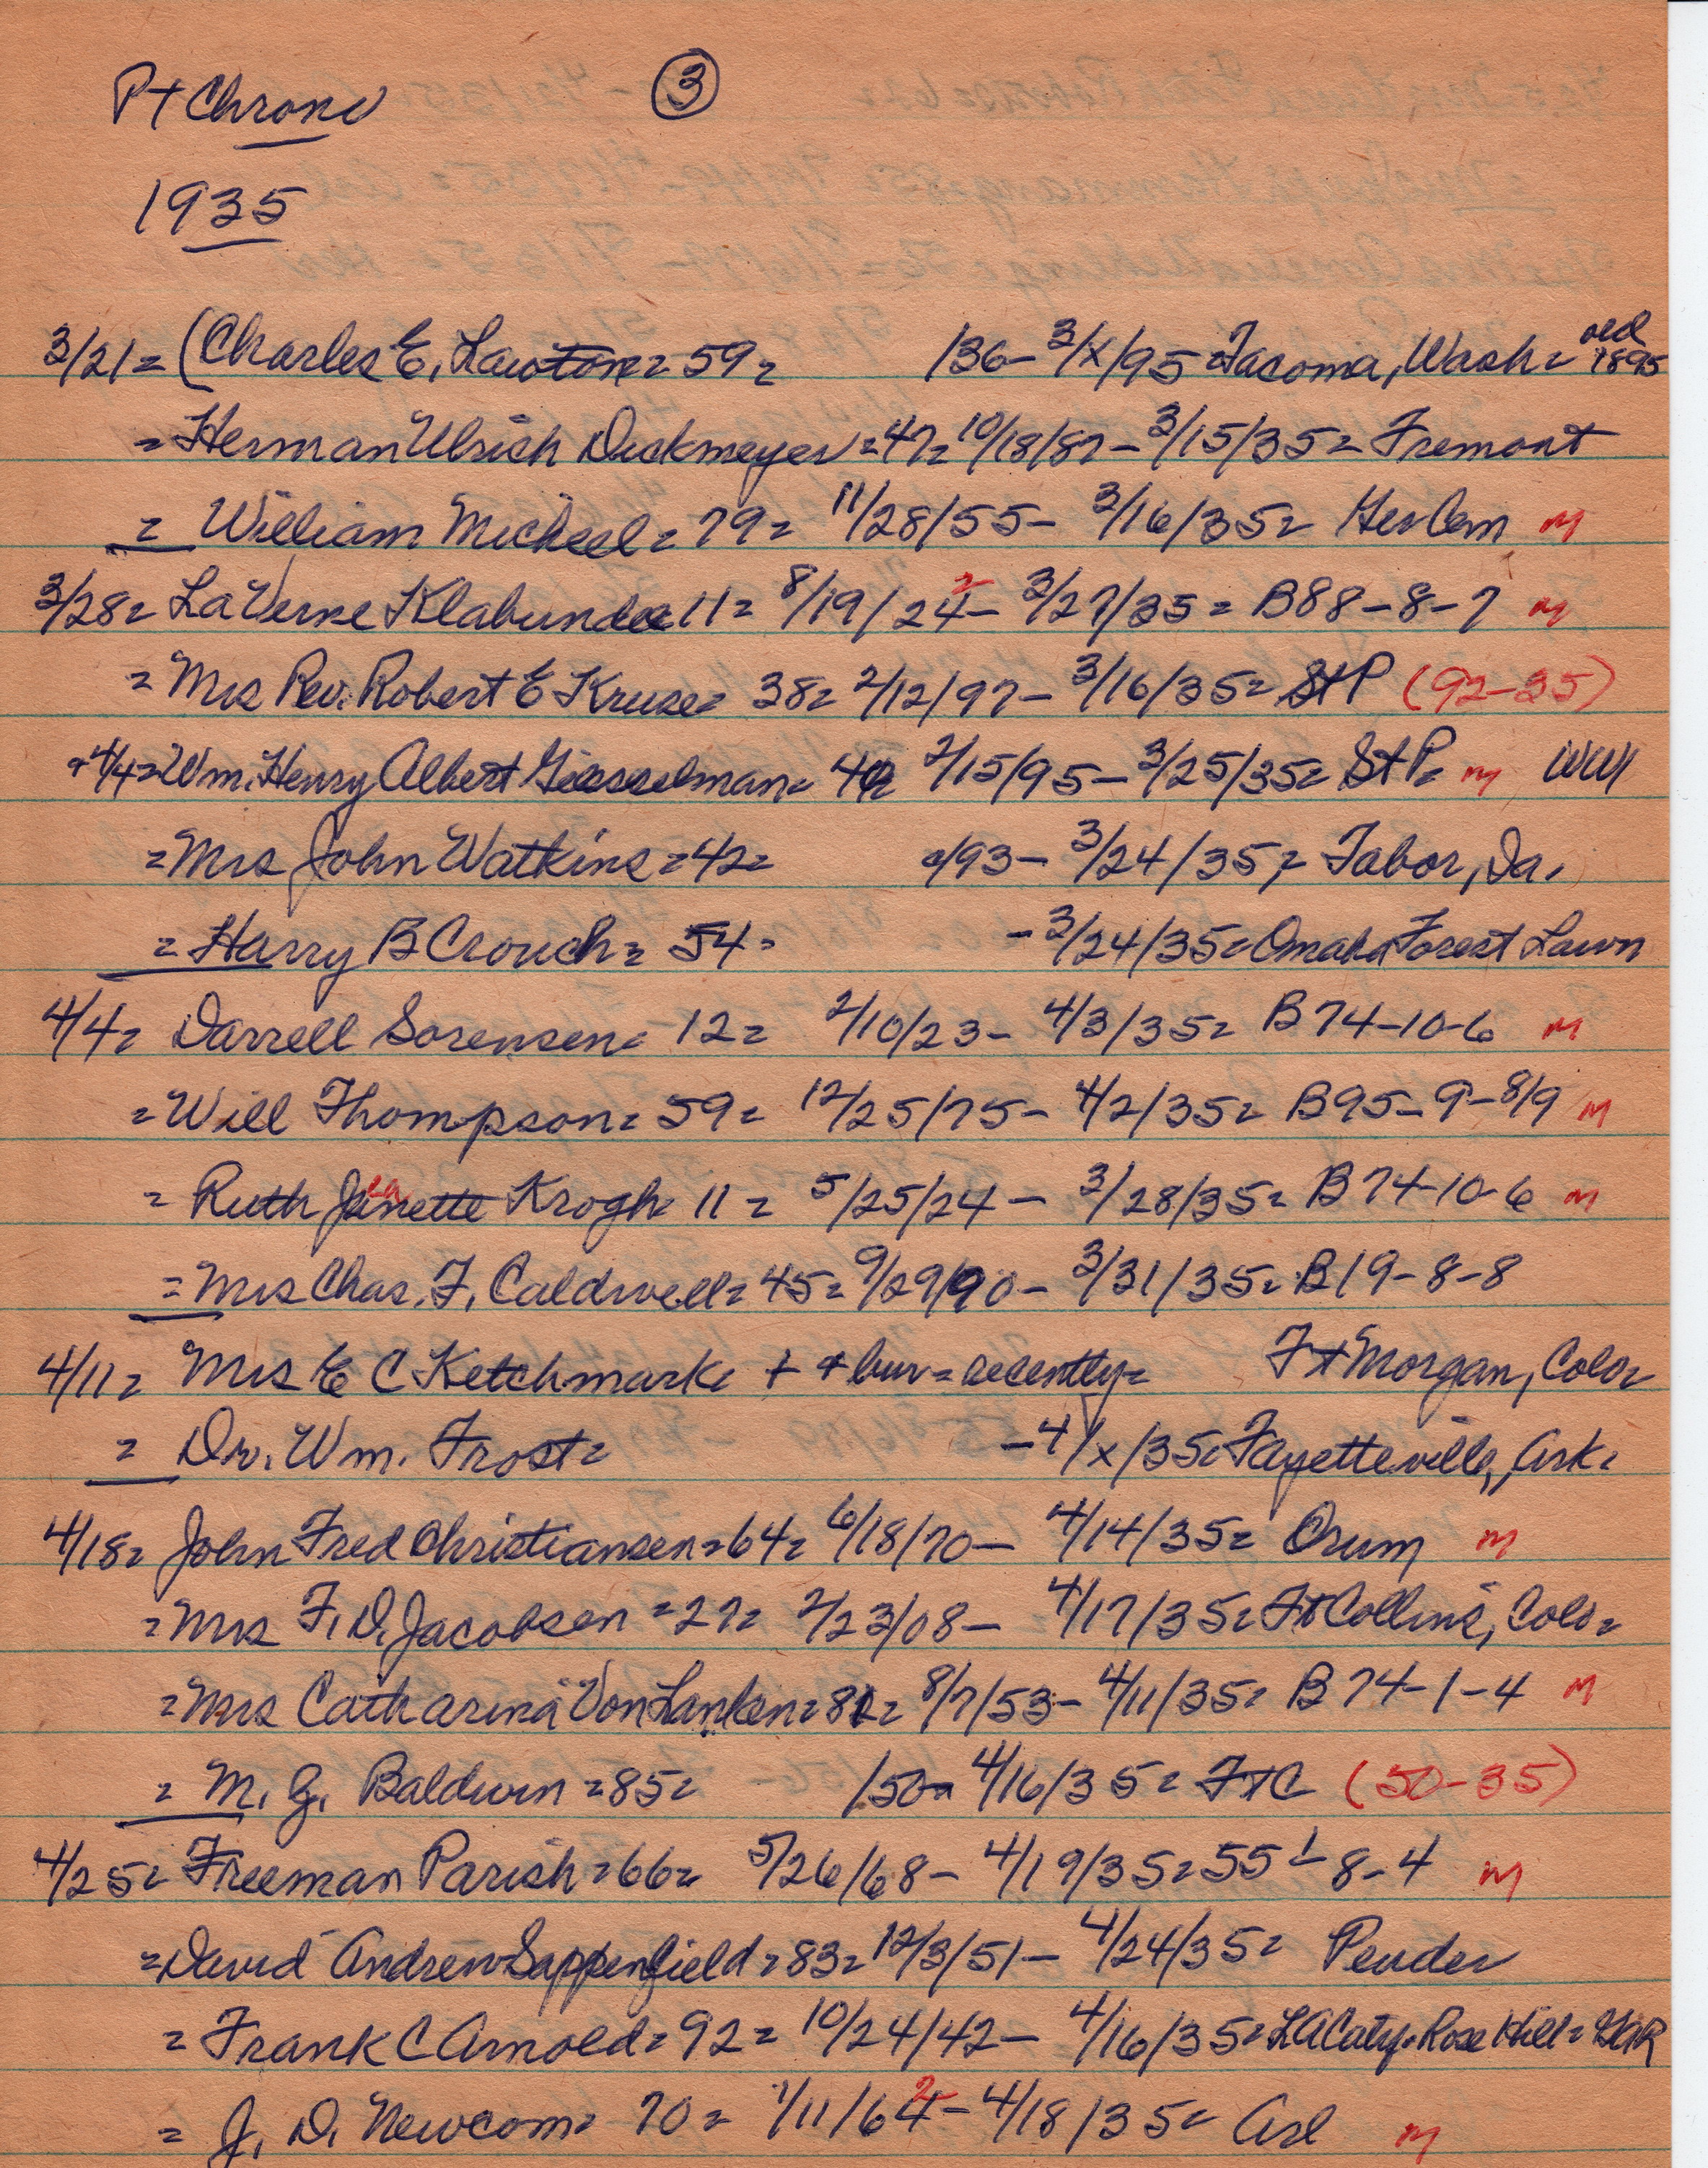 Pt Chrono ③
1935
3/21= (Charles E. Lawton= 59= /36- 3/x/95=Tacoma, Wash= old 1895
=Herman Ulrich Dickmeyer=47= 10/18/87-3/15/35= Fremont
= William Micheel= 79= 11/28/55- 3/16/35= Ger Cem m
3/28= LaVerne Klabunde 11= 8/19/24- 2 3/27/35= B88-8-7 m
=Mrs Rev. Robert E Kruse= 38= 2/12/97- 3/16/35= StP (92-35)
+4/4=Wm. Henry Albert Giesselman= 40= 2/15/95-3/25/35= StP= m WWI
=Mrs John Watkins=42= c/93- 3/24/35= Tabor, Ia.
=Harry B Crouch= 54= -3/24/35=Omaha Forest Lawn
4/4= Darrell Sorensen= 12= 2/10/23- 4/3/35= B74-10-6 m
=Will Thompson= 59= 12/25/75- 4/2/35= B95-9-8/9 m
= Ruth Jenette ea Krogh= 11= 5/25/24- 3/28/35= B74-10-6 m
=Mrs Chas. F. Caldwell= 45=9/29/90- 3/31/35= B19-8-8
4/11= Mrs E C Ketchmark= + + bur=recently= Ft Morgan, Colo=
= Dr. Wm. Frost= -4/x/35=Fayetteville, Ark=
4/18= John Fred Christiansen=64= 6/18/70- 4/14/35= Orum m
=Mrs F. D. Jacobsen =27= 2/23/08- 4/17/35=Ft Collins, Colo=
=Mrs Catharina VonLanken=81= 8/7/53- 4/11/35= B 74-1-4 m
= M. G. Baldwin =85= /50- 4/16/35= FtC (50-35)
4/25= Freeman Parish=66= 5/26/68- 4/19/35=55 L 8-4 m
=David Andrew Sappenfield=83=12/3/51- 4/24/35= Pender
= Frank C Arnold= 92= 10/24/42- 4/16/35=LACaty=Rose Hill= GAR
= J. D. Newcom= 70= 1/11/64 2 -4/18/35= Arl m